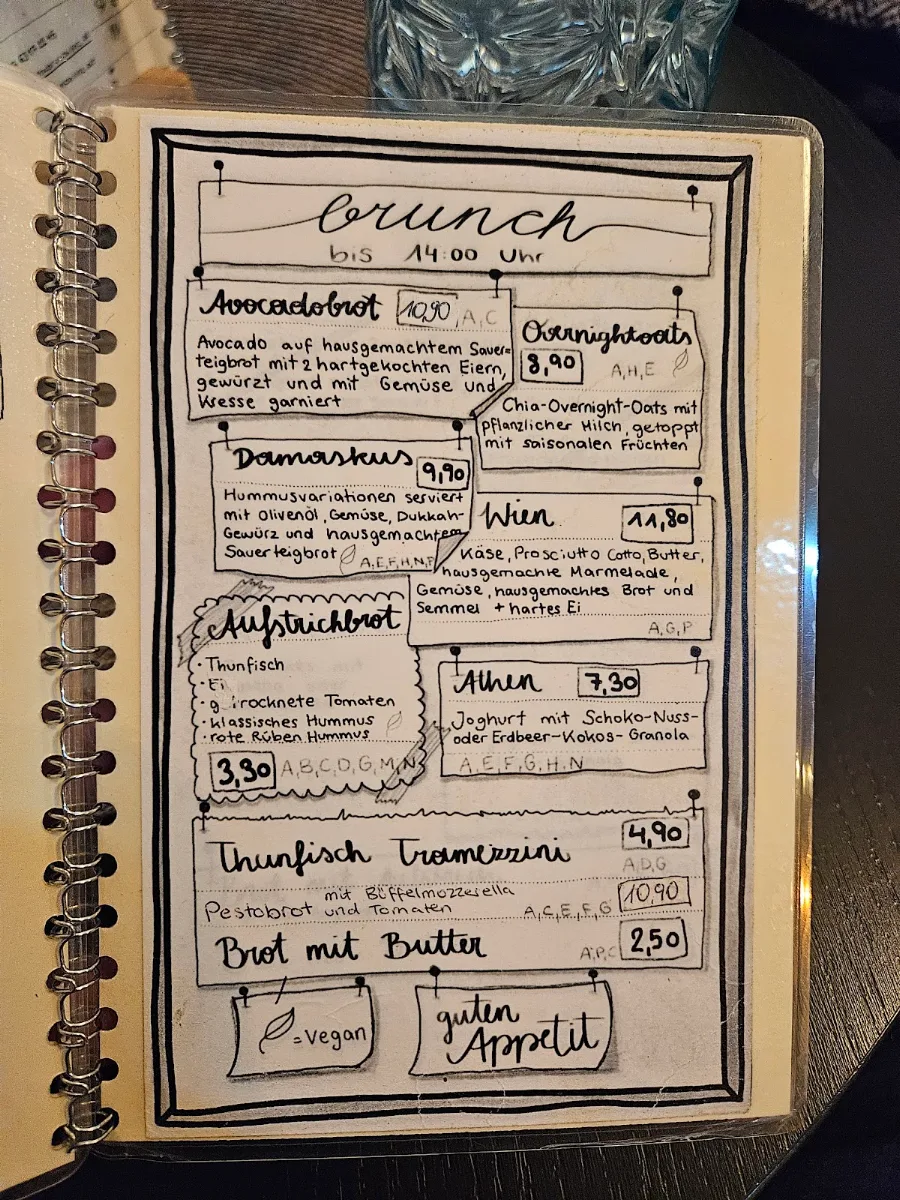 brunch
bis 14:00 Uhr
Avocadobrot 10,90 A,C
Avocado auf hausgemachtem Sauer=
teigbrot mit 2 hartgekochten Eiern,
gewürzt und mit Gemüse und
Kresse garniert
Overnightoats
8,90 A,H,E
Chia-Overnight-Oats mit
pflanzlicher Milch, getoppt
mit saisonalen Früchten
Damaskus 9,90
Hummusvariationen serviert
mit Olivenöl, Gemüse, Dukkah-
Gewürz und hausgemachtem
Sauerteigbrot A,E,F,H,N,P
Wien 11,80
Käse, Prosciutto Cotto, Butter,
hausgemachte Marmelade,
Gemüse, hausgemachtes Brot und
Semmel + hartes Ei
A,G,P
Aufstrichbrot
· Thunfisch
· Ei
· g trocknete Tomaten
· klassisches Hummus
· rote Rüben Hummus
3,30 A,B,C,D,G,M,N
Athen 7,30
Joghurt mit Schoko-Nuss-
oder Erdbeer-Kokos-Granola
A,E,F,G,H,N
Thunfisch Tramezzini 4,90
A,D,G
Pestobrot mit Büffelmozzerella
und Tomaten A,C,E,F,G 10,90
Brot mit Butter A,P,C 2,50
=vegan
guten
Appetit